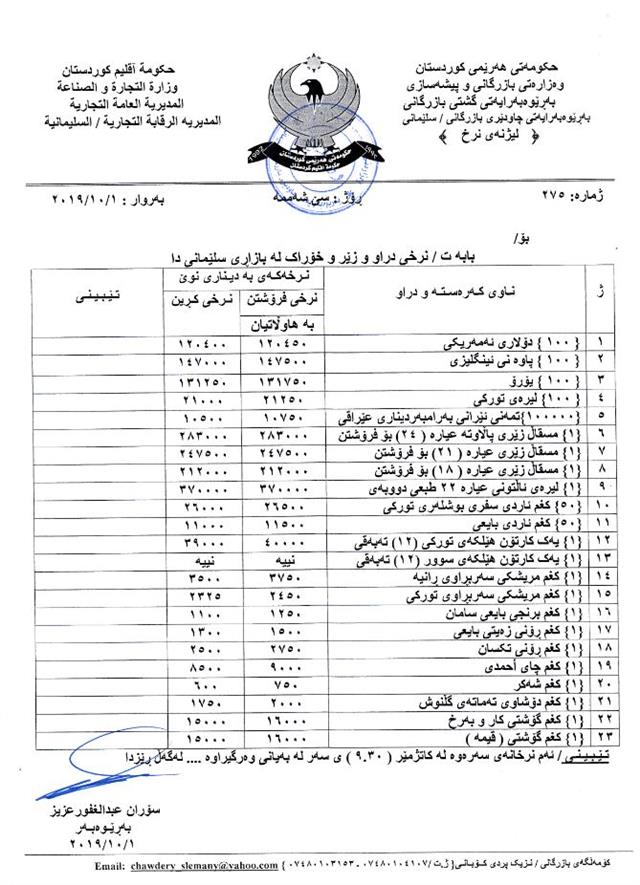 حکومەتی هەرێمی کوردستان
وەزارەتی بازرگانی و پیشەسازی
بەڕێوەبەرایەتی گشتی بازرگانی
بەڕێوەبەرایەتی چاودێری بازرگانی / سلێمانی
﴿ لیژنەی نرخ ﴾
حكومة أقليم كوردستان
وزارة التجارة و الصناعة
المديرية العامة التجارية
المديريه الرقابة التجارية / السليمانية
حکومەتی هەرێمی کوردستان
حكومة اقليم كردستان
ژمارە: ٢٧٥ ڕۆژ : سێ شەممە بەروار : ٢٠١٩/١٠/١
بۆ/
بابە ت / نرخی دراو و زێر و خۆراک لە بازاڕی سلێمانی دا
ژ ناوی کەرەستە و دراو نرخەکەی بە دیناری نوێ تێبینی
نرخی فرۆشتن بە هاوڵاتیان نرخی کڕین
١ {١٠٠} دۆلاری ئەمەریکی ١٢٠٤٥٠ ١٢٠٤٠٠
٢ {١٠٠} پاوە نی ئینگلیزی ١٤٧٥٠٠ ١٤٧٠٠٠
٣ {١٠٠} یۆرۆ ١٣١٧٥٠ ١٣١٢٥٠
٤ {١٠٠} لیرەی تورکی ٢١٢٥٠ ٢١٠٠٠
٥ {١٠٠٠٠٠}تمەنی ئێرانی بەرامبەردیناری عێراقی ١٠٧٥٠ ١٠٥٠٠
٦ {١} مسقاڵ زێری پاڵاوتە عیارە ( ٢٤ ) بۆ فرۆشتن ٢٨٣٠٠٠ ٢٨٣٠٠٠
٧ {١} مسقاڵ زێری عیارە ( ٢١ ) بۆ فرۆشتن ٢٤٧٥٠٠ ٢٤٧٥٠٠
٨ {١} مسقاڵ زێری عیارە ( ١٨ ) بۆ فرۆشتن ٢١٢٠٠٠ ٢١٢٠٠٠
٩ {١} لیرەی ئاڵتونی عیارە ٢٢ طبعی دووبەی ٣٧٠٠٠٠ ٣٧٠٠٠٠
١٠ {٥٠} کغم ئاردی سفری بوشلەری تورکی ٢٦٥٠٠ ٢٦٠٠٠
١١ {٥٠} کغم ئاردی بایعی ١١٥٠٠ ١١٠٠٠
١٢ {١} یەک کارتۆن هێلکەی تورکی (١٢) تەبەقی ٤٠٠٠٠ ٣٩٠٠٠
١٣ {١} یەک کارتۆن هێلکەی سوور (١٢) تەبەقی نییە نییە
١٤ {١} کغم مریشکی سەربڕاوی ڕانیە ٣٧٥٠ ٣٥٠٠
١٥ {١} کغم مریشکی سەربڕاوی تورکی ٢٤٥٠ ٢٣٢٥
١٦ {١} کغم برنجی بایعی سامان ١٢٥٠ ١١٠٠
١٧ {١} کغم ڕۆنی زەیتی بایعی ١٥٠٠ ١٣٠٠
١٨ {١} کغم ڕۆنی تکسان ٢٧٥٠ ٢٥٠٠
١٩ {١} کغم چای أحمدی ٩٠٠٠ ٨٥٠٠
٢٠ {١} کغم شەکر ٧٥٠ ٦٠٠
٢١ {١} کغم دۆشاوی تەماتەی گڵنوش ٢٠٠٠ ١٧٥٠
٢٢ {١} کغم گۆشتی کار و بەرخ ١٦٠٠٠ ١٥٠٠٠
٢٣ {١} کغم گۆشتی ( قیمە ) ١٦٠٠٠ ١٥٠٠٠
تێبینی/ ئەم نرخانەی سەرەوە لە کاتژمێر ( ٩.٣٠ ) ی سەر لە بەیانی وەرگیراوە .... لەگەڵ ڕێزدا
سۆران عبدالغفورعزیز
بەڕێوەبەر
٢٠١٩/١٠/١
کۆمەڵگەی بازرگانی / نزیک پردی کۆبانی{ ژ.ت /٠٧٤٨٠١٠٤١٠٧ - ٠٧٤٨٠١٠٣١٥٣ } Email: chawdery_slemany@yahoo.com